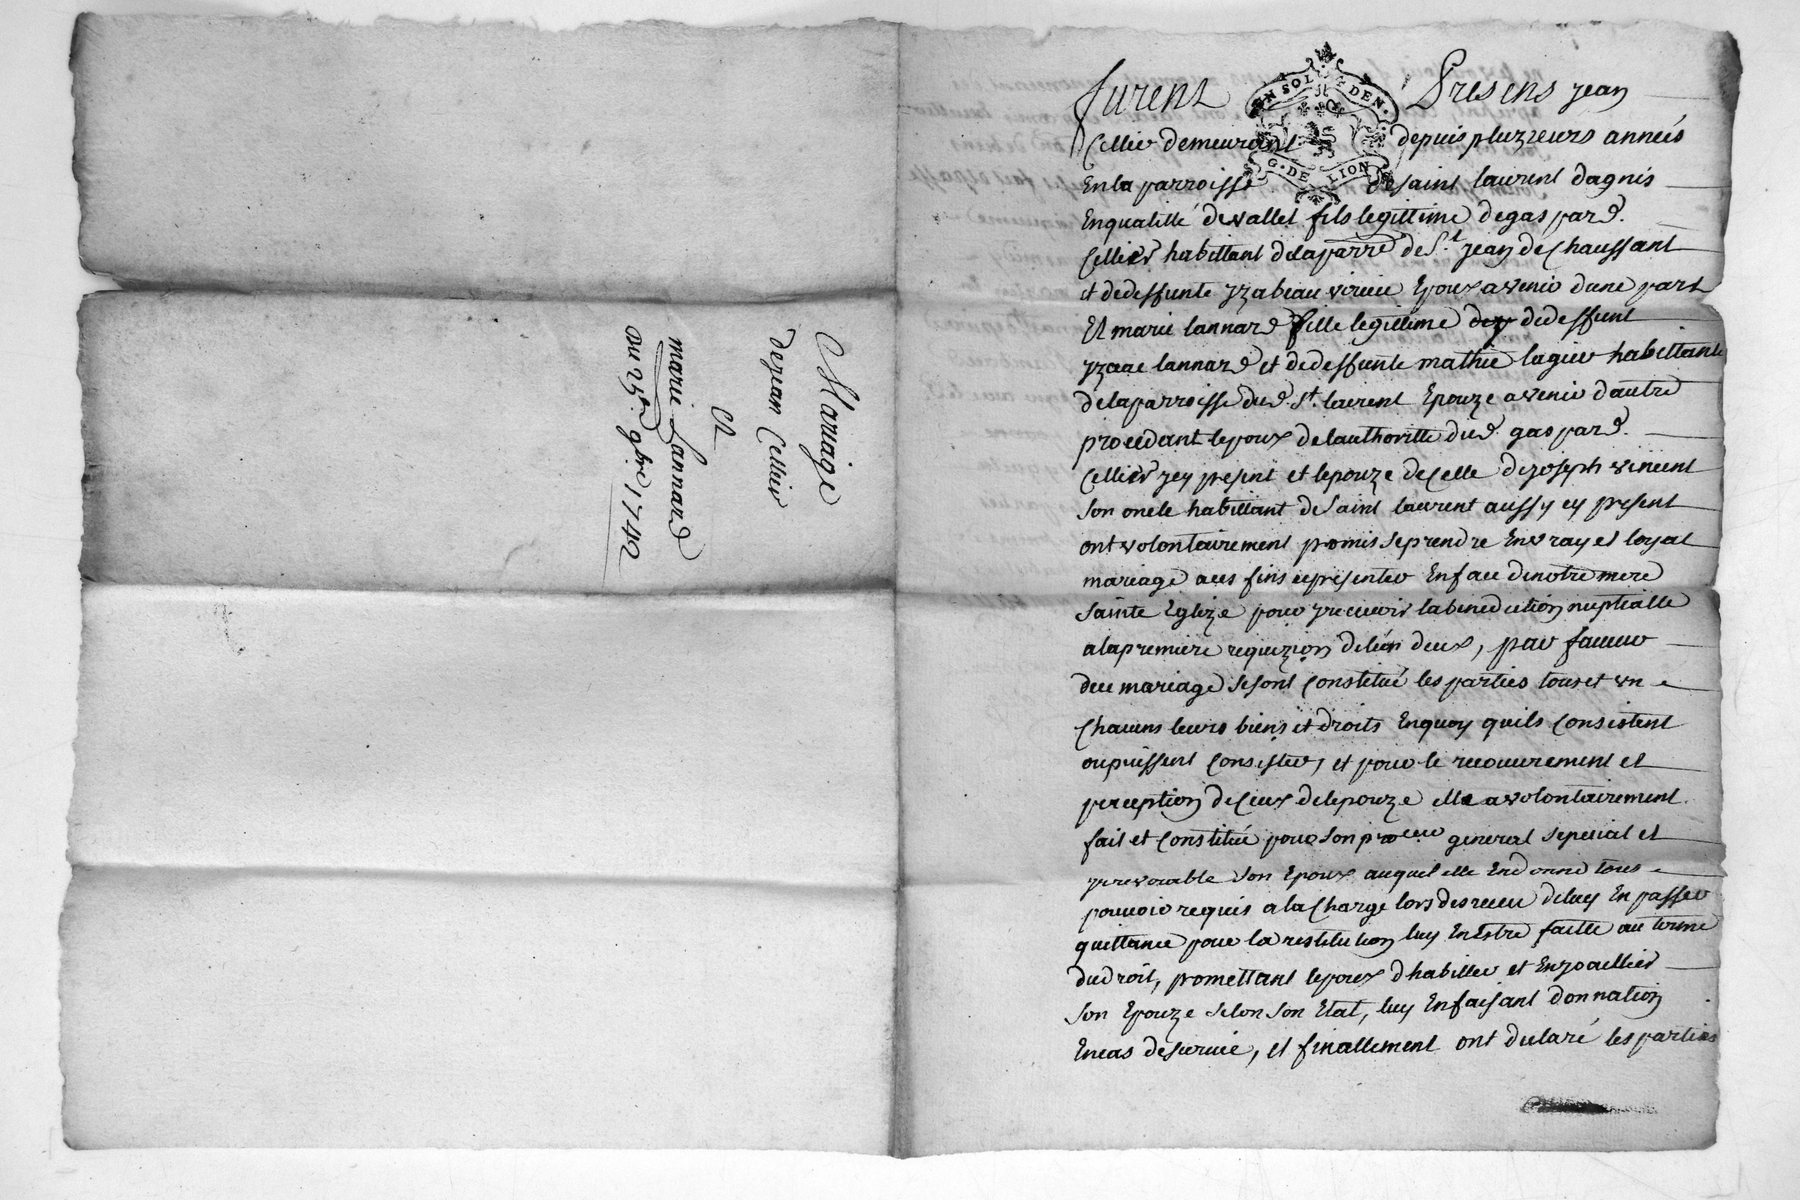 Mariage
de jean Cellier
Et
marie Lannard
du 25e 9bre 1742
furent Presens jean
EN SOL DEN.
G. DE LION
Cellier demeurant depuis pluzieurs années
En la parroisse de saint laurent dagnis
En qualitté de vallet fils legittime de gaspard
Cellier habittant de la parre de St jean de Chaussant
et de deffunte yzabeau Epoux avenir dune part
Et marie lannard fille legittime de deffunt
yzaac lannard et de deffunte mathie lagier habittante
de la parroisse dud. St. laurent Epouze avenir dautre
procedant lepoux de lauthoritté dud. gaspard
Cellier jcy present et lepouze de Celle de joseph vincent
son oncle habittant de Saint laurent aussy cy present
ont volontairement promis se prendre En vray et loyal
mariage a ces fins se presenter En face de notre mere
Sainte Eglize pour y recevoir la benediction nuptialle
a la premiere requizion de lun deux, par faveur
du mariage se sont Constitué les parties tous et un
Chacuns leurs biens et droits En quoy quils Consistent
ou puissent Consister, et pour le recouvrement et
perception de Ceux de lepouze elle a volontairement
fait et Constitué pour son procureur general special et
yrrevocable son Epoux auquel elle En donne tous
pouvoir requis a la Charge lors des receu de luy En passer
quittance pour la restitution luy En Estre faitte au terme
du droit, promettant lepoux dhabiller et Enjoaillier
son Epouze selon son Etat, luy En faisant donnation
En cas de survie, et finallement ont declaré les parties